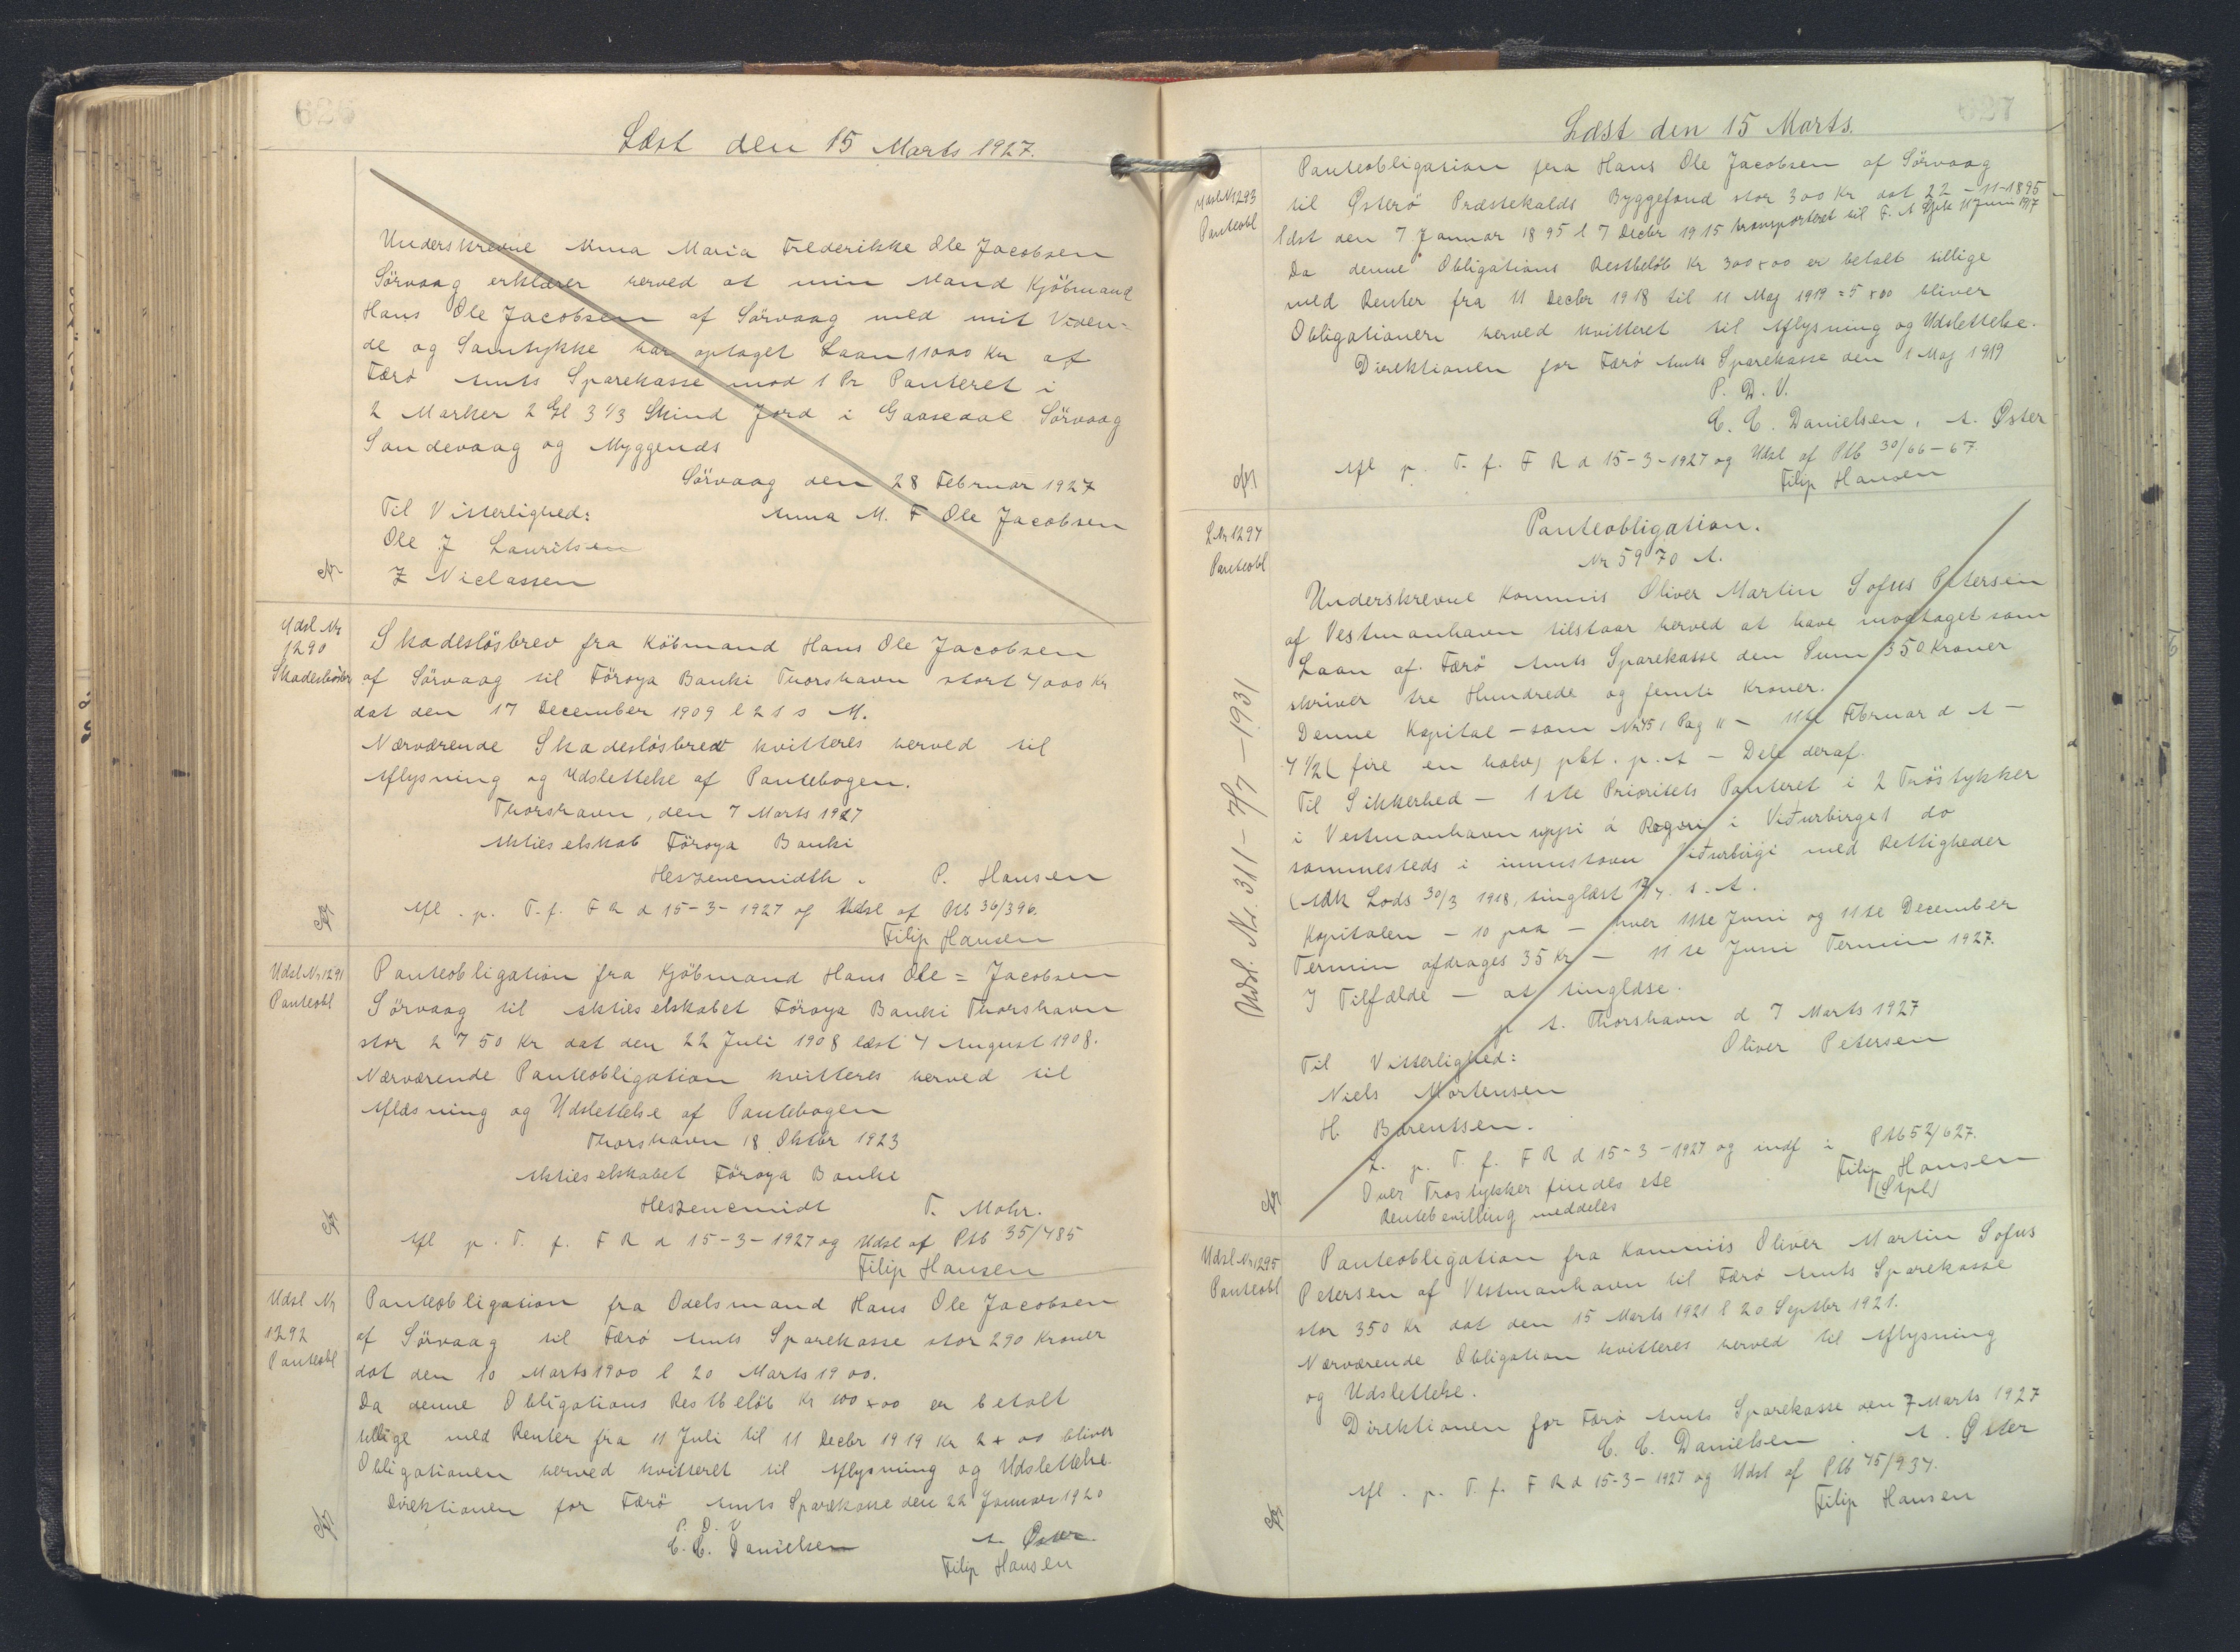 626
Læst den 15 Marts 1927.
Underskrevne Anna Maria Frederikke Ole Jacobsen
Sörvaag erklærer herved at min Mand Kjöbmand
Hans Ole Jacobsen af Sörvaag med mit Viden-
de og Samtykke har optaget Laan 11000 Kr af
Færö Amts Sparekasse mod 1 Pr Panteret i
2 Marker 2 Gl 3 1/3 Skind Jord i Gaasedal Sörvaag
Sandevaag og Myggenæs
Sörvaag den 28 Februar 1927
Til Vitterlighed:
Anna M. F Ole Jacobsen
Ole J Lauritsen
Z Niclassen
Udsl Nr
1290
Skadeslösbr
Skadeslösbrev fra Köbmand Hans Ole Jacobsen
af Sörvaag til Föroya Banki Thorshavn stort 4000 Kr
dat den 17 December 1909 l 21 s M.
Nærværende Skadeslösbrev kvitteres herved til
Aflysning og Udslettelse af Pantebogen.
Thorshavn, den 7 Marts 1927
Aktieselskab Föroya Banki
P. Hansen
Afl. p. T. f. F R d 15-3-1927 og Udsl af Ptb 36/396.
Filip Hansen
Udsl Nr 1291
Panteobl
Panteobligation fra Kjöbmand Hans Ole = Jacobsen
Sörvaag til Aktieselskabet Föroya Banki Thorshavn
stor 2750 Kr dat den 22 Juli 1908 læst 4 August 1908.
Nærværende Panteobligation kvitteres herved til
Aflæsning og Udslettelse af Pantebogen
Thorshavn 18 Oktbr 1923
Aktieselskabet Föroya Banki
T. Mohr.
Afl p. T. f. F R d 15-3-1927 og Udsl af Ptb 35/485
Filip Hansen
Udsl Nr
1292
Panteobl
Panteobligation fra Odelsmand Hans Ole Jacobsen
af Sörvaag til Færö Amts Sparekasse stor 290 Kroner
dat den 10 Marts 1900 l 20 Marts 1900.
Da denne Obligations Restbelöb Kr 100 x 00 er betalt
tillige med Renter fra 11 Juli til 11 Decbr 1919 Kr 2 x 00 bliver
Obligationen herved kvitteret til Aflysning og Udslettelse.
Direktionen for Færö Amts Sparekasse den 22 Januar 1920
P. D. V
C. C. Danielsen A. Öster
Filip Hansen
627
Læst den 15 Marts.
Udsl Nr 1293
Panteobl
Panteobligation fra Hans Ole Jacobsen af Sörvaag
til Österö Præstekalds Byggefond stor 300 Kr dat 22-11-1895
læst den 7 Januar 1895 l 7 Decbr 1915 transporteret til F. A Spk 11 Juni 1917
Da denne Obligations Restbelöb Kr 300 x 00 er betalt tillige
med Renter fra 11 Decbr 1918 til 11 Maj 1919 = 5 x 00 bliver
Obligationen herved kvitteret til Aflysning og Udslettelse.
Direktionen for Færö Amts Sparekasse den 1 Maj 1919
P. D. V.
C. C. Danielsen, A. Öster
Afl p. T. f. F R d 15-3-1927 og Udsl af Ptb 30/66-67.
Filip Hansen
L Nr 1294
Panteobl
Panteobligation.
Nr 5970 A.
Underskrevne Kommis Oliver Martin Sofus Petersen
af Vestmanhavn tilstaar herved at have modtaget som
Laan af Færö Amts Sparekasse den Sum 350 Kroner
skriver tre Hundrede og femti Kroner.
Denne Kapital - som Nr 451 Pag 11 - 11te Februar d A -
4 1/2 ( fire en halv) pkt. p. A - Dele deraf.
Til Sikkerhed - 1ste Prioritets Panteret i 2 Tröstykker
i Vestmanhavn uppi á Rogvi i Viðurbirget do
sammesteds i innustovu Viðurbirgi med Rettigheder
(Adk Lods 30/3 1918, tinglæst 17/4. s. A.
Kapitalen - 10 paa - hver 11te Juni og 11te December
Termin afdrages 35 Kr - 11te Juni Termin 1927.
I Tilfælde - at tinglæse.
p. t. Thorshavn d 7 Marts 1927
Oliver Petersen
Til Vitterlighed:
Niels Mortensen
H. Barentsen.
L. p. T. f. F R d 15-3-1927 og indf i Ptb 52/627.
Over Tröstykker findes ete
Filip Hansen
(Stpl)
Rentebevilling meddeles
Udsl. Nr. 311 - 7/7 - 1931
Udsl Nr 1295
Panteobl
Panteobligation fra Kommis Oliver Martin Sofus
Petersen af Vestmanhavn til Færö Amts Sparekasse
stor 350 Kr dat den 15 Marts 1921 l 20 Septbr 1921.
Nærværende Obligation kvitteres herved til Aflysning
og Udslettelse.
Direktionen for Færö Amts Sparekasse den 7 Marts 1927
C. C. Danielsen . A. Öster
Afl. p. T. f. F R d 15-3-1927 og Udsl af Ptb 45/934.
Filip Hansen